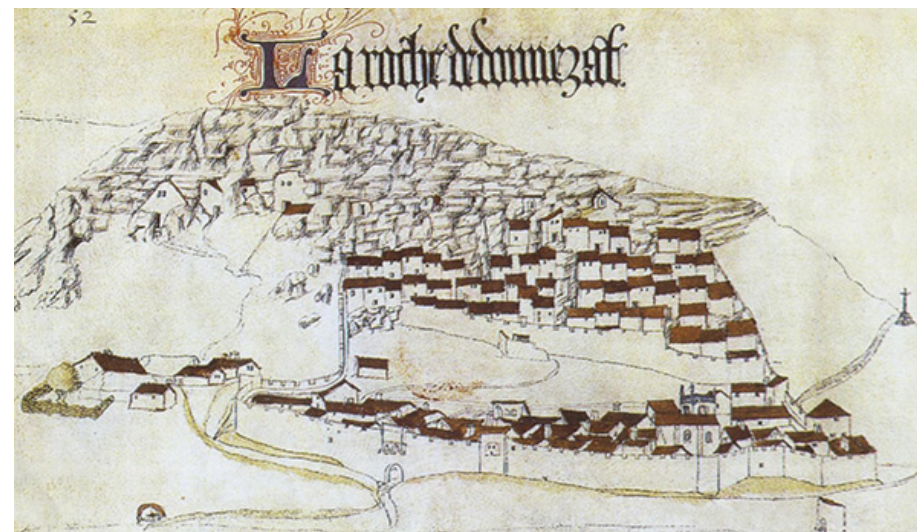 52
La roche dedonnezat.